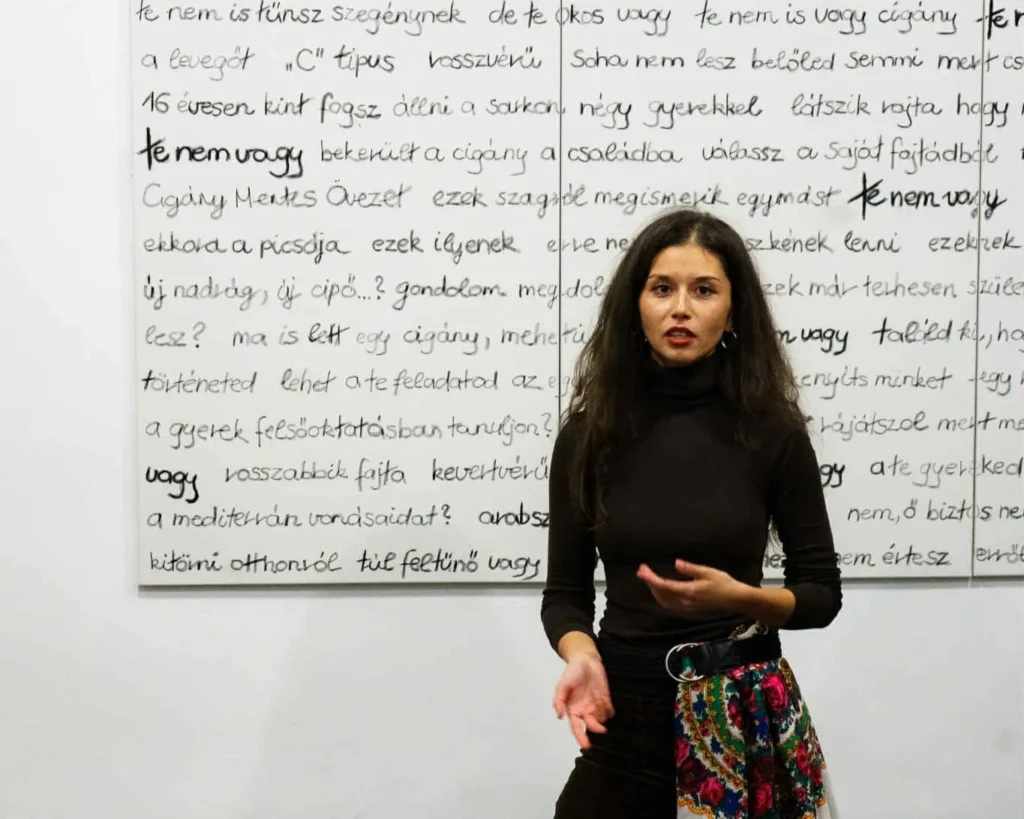 te nem is tűnsz szegénynek de te okos vagy te nem is vagy cigány
a levegőt „C” típus rosszvérű Soha nem lesz belőled Semmi mert
16 évesen kint fogsz állni a sarkon négy gyerekkel látszik rajta hogy
te nem vagy bekerült a cigány a családba válassz a Saját fajtádból
Cigány Mentes Övezet ezek szagról megismerik egymást te nem vagy
ekkora a picsája ezek ilyenek erre lenni
új nadrág, új cipő...? gondolom már terhesen
lesz? ma is lett egy cigány, vagy találd ki,
történeted lehet a te feladatod az minket egy
a gyerek felsőoktatásban tanuljon? rájátszol mert
vagy rosszabbik fajta kevertvérű a te gyerekked
a mediterrán vonásaidat? nem, ő biztos
kitörni otthonról túl feltűnő vagy nem értesz